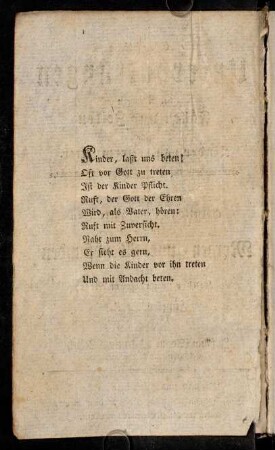 Kinder, laſſt uns beten!
Oft vor Gott zu treten
Iſt der Kinder Pflicht.
Ruft, der Gott der Ehren
Wird, als Vater, hören:
Ruft mit Zuverſicht.
Naht zum Herrn,
Er ſieht es gern,
Wenn die Kinder vor ihn treten
Und mit Andacht beten.